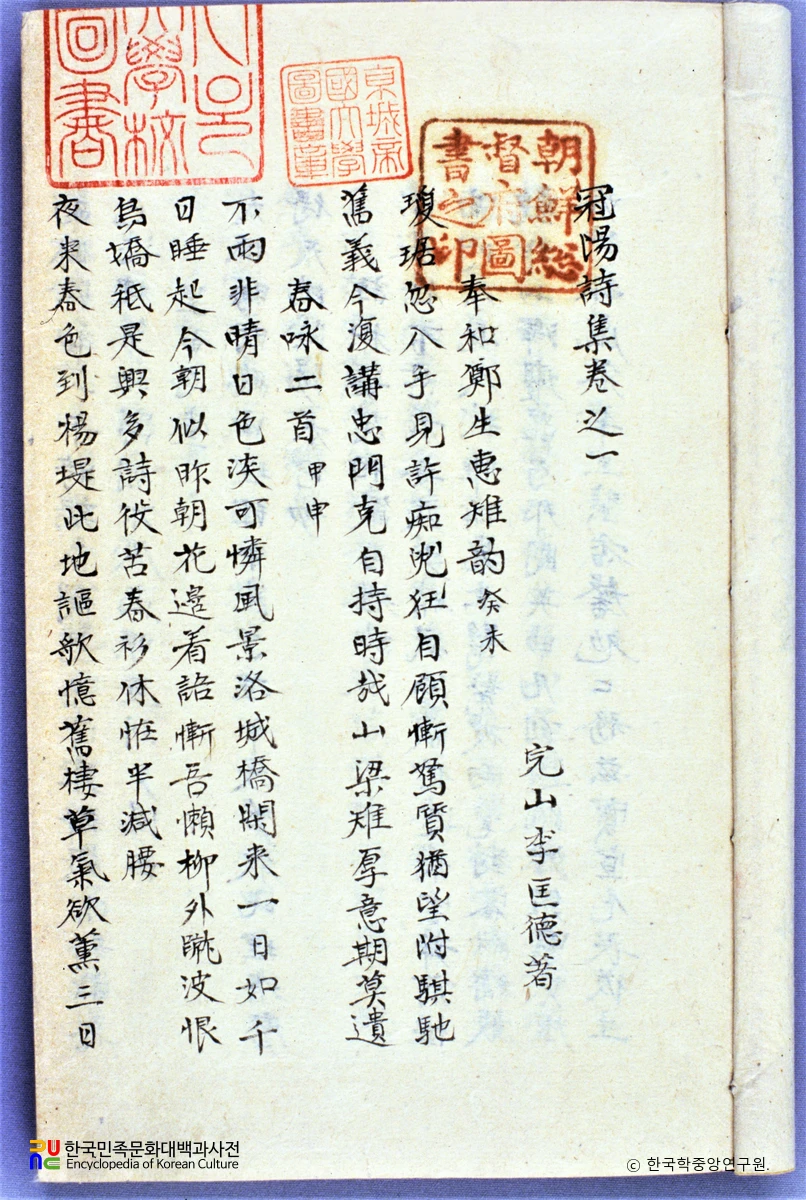 冠陽詩集卷之一
完山李匡德著
奉和鄭生惠雉韵 癸未
瓊琚忽入手見許痴兒狂自顧慚駑質猶望附騏馳
舊義今復講忠門克自持時哉山梁雉厚意期莫遺
春咏二首 甲申
不雨非晴日色淡可憐風景洛城橋閑來一日如千
日睡起今朝似昨朝花邊着語慚吾懶柳外晀波恨
鳥嬌祗是興多詩役苦春衫休恠半減腰
夜來春色到楊堤此地謳歌憶舊棲草氣欲薰三日
朝鮮總督府圖書之印
京城帝國大學圖書章
서울大學校圖書
한국민족문화대백과사전
Encyclopedia of Korean Culture
© 한국학중앙연구원.